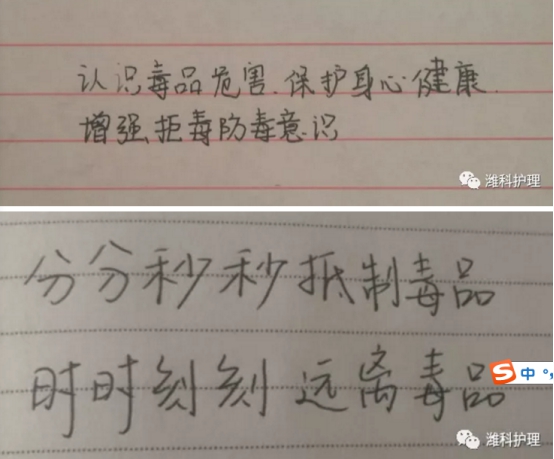 认识毒品危害.保护身心健康.
增强拒毒防毒意识
潍科护理
分分秒秒抵制毒品
时时刻刻远离毒品
中°,
潍科护理